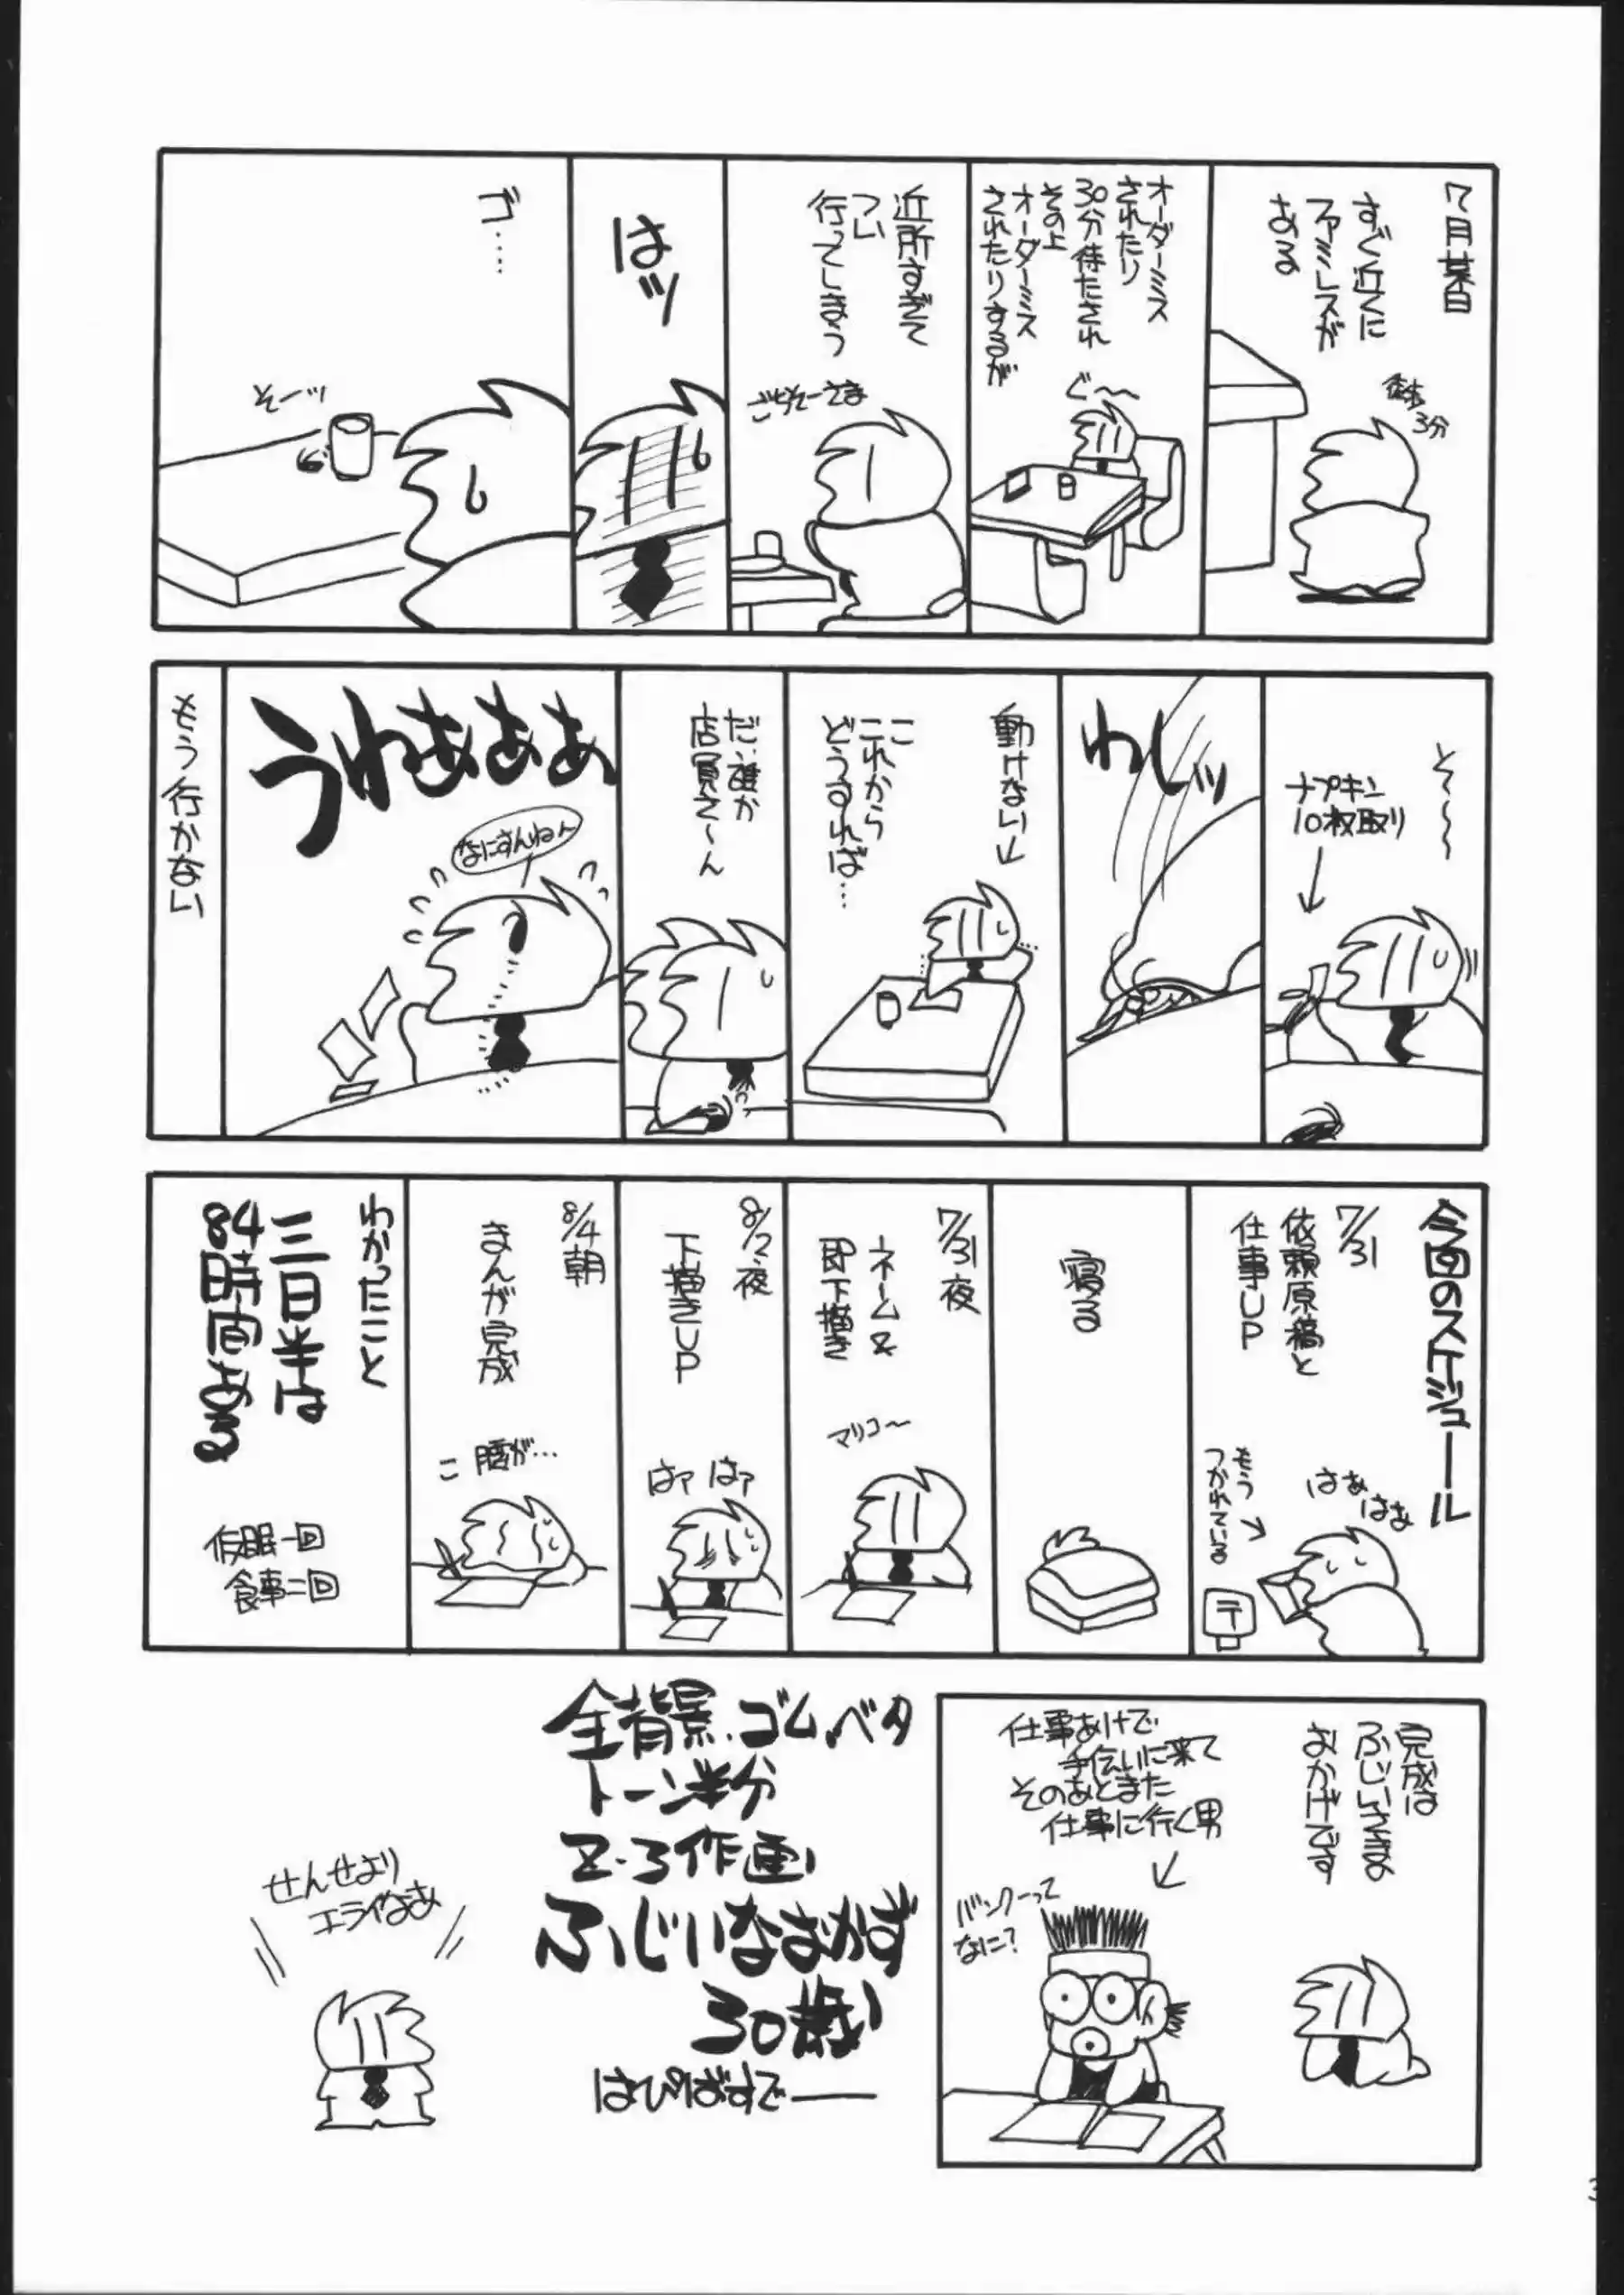 7月某日
すぐ近くに
ファミレスが
ある
徒歩
3分
オーダーミス
されたり
30分待たされ
その上
オーダーミス
されたりするが
ぐ〜〜
近所すぎて
つい
行ってしまう
ごちそーさま
はッ
ゴ……
そーッ
そ〜〜〜
ナプキン
10枚取り
わしッ
動けない
こ
これから
どうすれば…
だ、誰か
店員さ〜ん
うわぁぁぁ
なにすんねん
もう行かない
今回のスケジュール
7/31
依頼原稿と
仕事UP
はぁ
はぁ
もう
つかれている
〒
寝る
7/31夜
ネーム&
即下描き
マリコ〜
8/2夜
下描きUP
はァ はァ
8/4朝
まんが完成
こ 腰が…
わかったこと
三日半は
84時間ある
仮眠一回
食事二回
完成は
ふじいさまの
おかげです
仕事あけで
手伝いに来て
そのあとまた
仕事に行く男
バンクーって
なに?
全背景、ゴム、ベタ
トーン半分
Z・3作画
ふじいなおかず
30歳
はぴばすでー
せんせより
エライなぁ
3